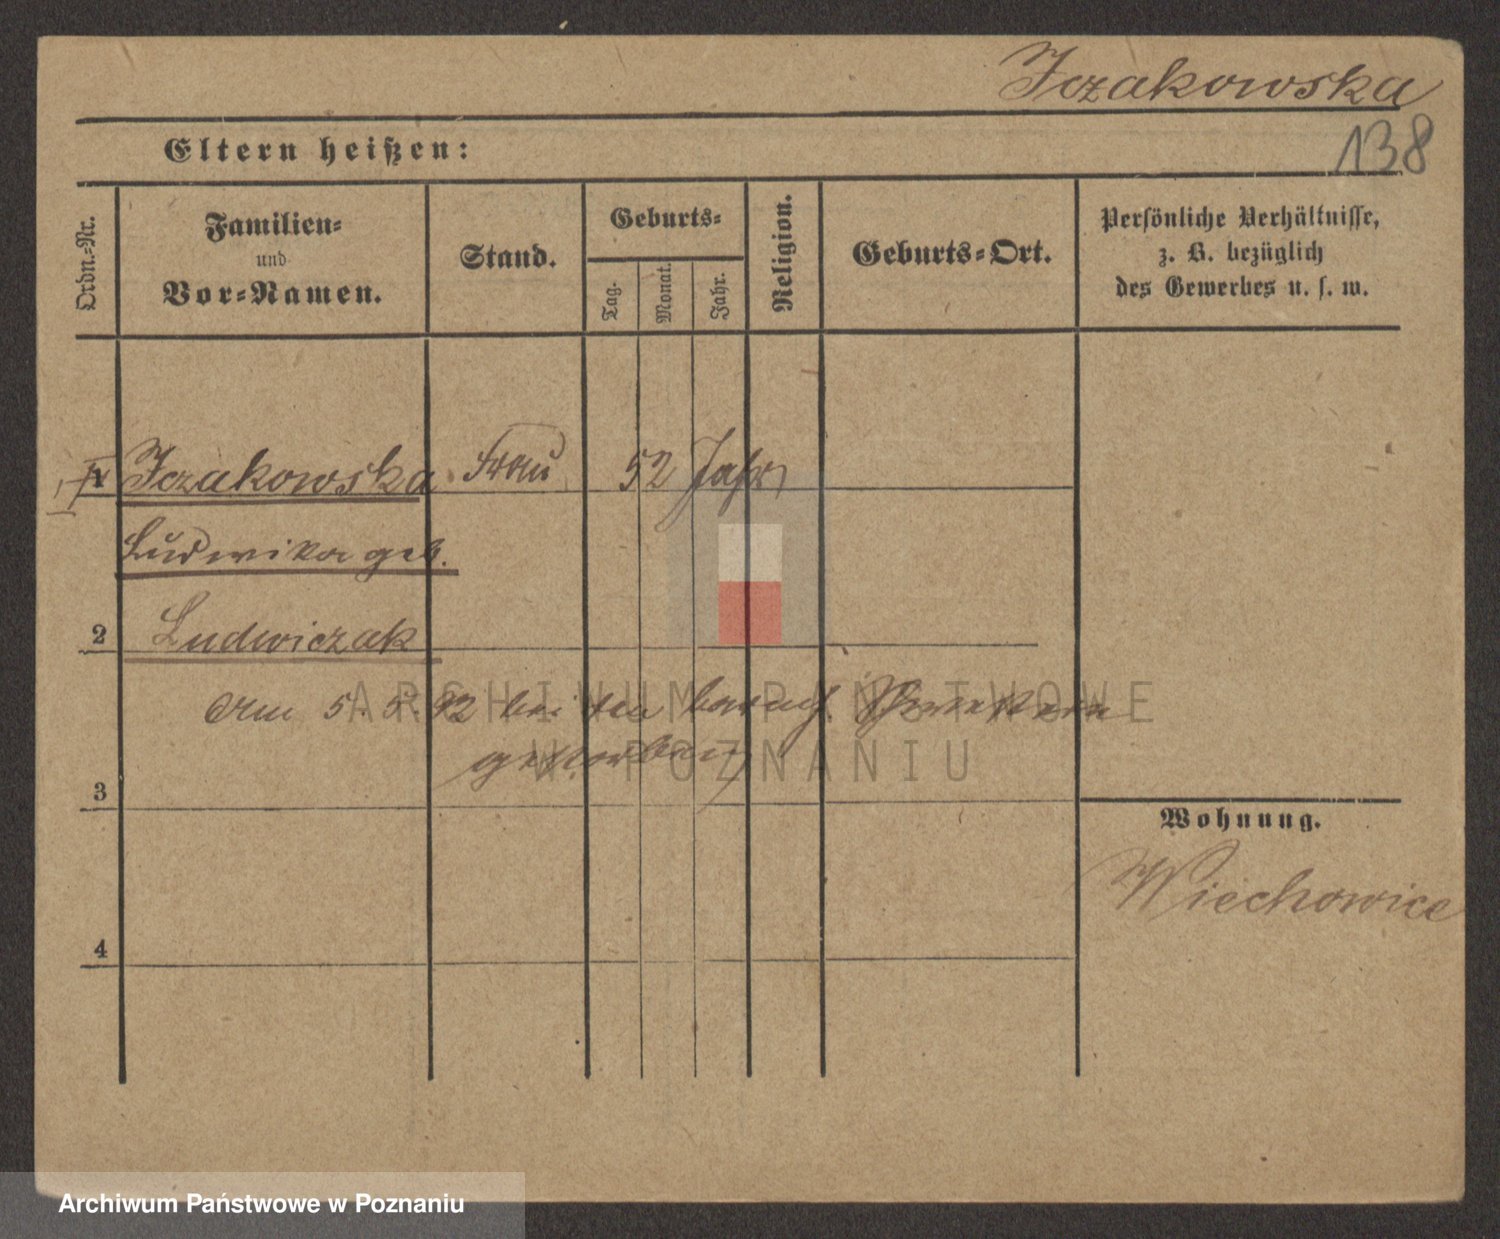 Jczakowska
138
Eltern heißen:
Ordn.-Nr.
Familien-
und
Vor-Namen.
Stand.
Geburts-
Tag.
Monat.
Jahr.
Religion.
Geburts-Ort.
Persönliche Verhältnisse,
z. B. bezüglich
des Gewerbes u. s. w.
1 Jczakowska Frau 52 Jahr
Ludwika geb.
2 Ludwiczak
Am 5. 5. 92 bei den barmh. Schwestern
gestorben
3
Wohnung.
Wiechowice
4
ARCHIWUM PAŃSTWOWE
W POZNANIU
Archiwum Państwowe w Poznaniu